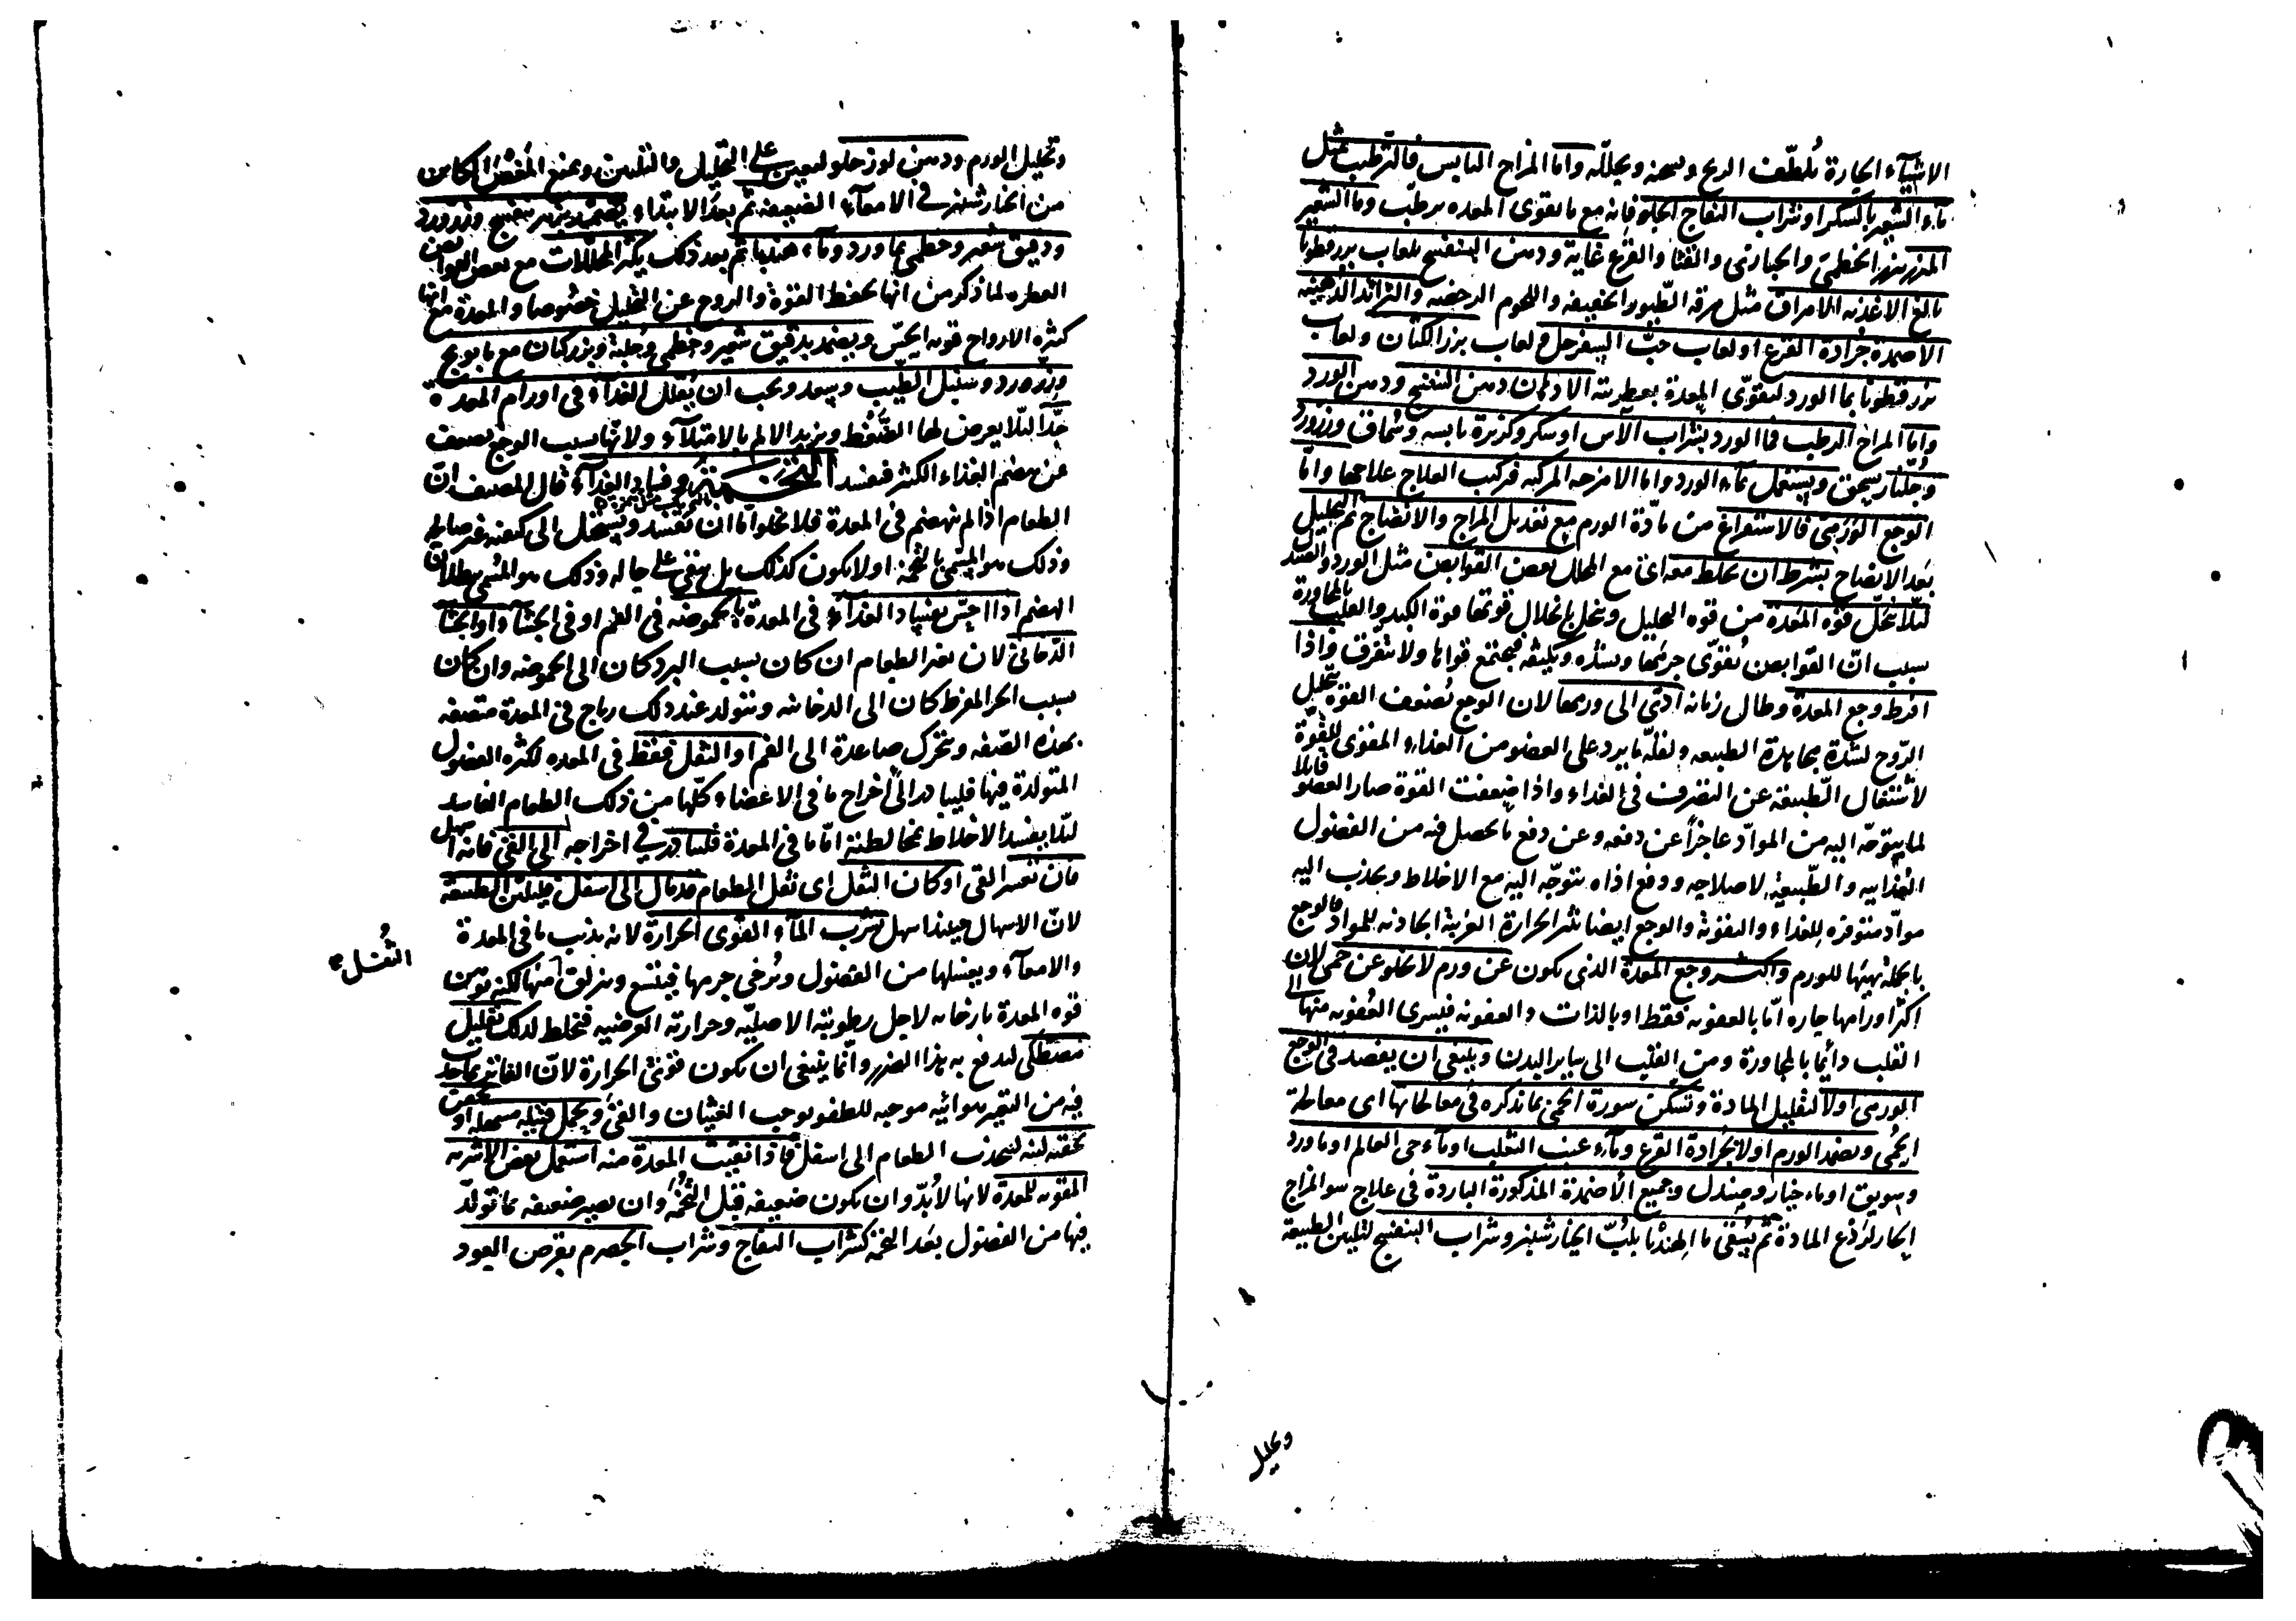 الاشيآء الحارة تُلطّف الريح وتسخنه ويحلّله واما المزاج اليابس فالترطيب مثل
مآء الشعير بالسكر او شراب التفاح الحلو فانه مع ما يقوى المعده يرطب وما الشعير
المزر الخطمى والخبازى والقثا والقرع غاية ودهن البنفسج بلعاب بزرقطونا
بالغ الاغذيه الامراق مثل مرقه الطيور الخفيفه واللحوم الرخصه والثرائد الدهنيه
الاضمدة جُرادة القرع او لعاب حبّ السفرجل ولعاب بزر الكتان ولعاب
بزرقطونا بما الورد ليقوّى المعدة بعطريته الادهان دهن البنفسج ودهن الورد
واما المزاج الرطب فما الورد بشراب الآس او سكر وكزبرة يابسه وسُماق وزرورد
وجُلّنار يسحق ويستعمل بمآء الورد واما الامزجه المركبه فركب العلاج علاجها وامّا
الوجع الوَرَمىّ فالاستفراغ من مادّة الورم مع تعديل المزاج والانضاج ثم التحليل
بعد الانضاج بشرط ان يخلط معه اى مع المحلل بعض القوابض مثل الورد والصندل
لئلا تحلّ قوه المعدة من قوه التحليل وتنحل بانحلال قوتها قوة الكبد والقلب بالمجاورة
بسبب انّ القوابض تُقوّى جرمها وتشدّه وتكثفه فيجتمع قواها ولا تتفرق واذا
افرط وجع المعدة وطال زمانه ادّى الى ورمها لان الوجع يُضعف القوه بتحليل
الرّوح لشدة مجاهدة الطبيعه ولقلّه ما يرد على العضو من الغذاء المقوى للقوّة
لاشتغال الطبيعة عن التصرف فى الغذاء واذا ضعفت القوة صار العضو قابلا
لما يتوجّه اليه من الموادّ عاجزاً عن دفعه وعن دفع ما يحصل فيه من الفضول
الغذاييه والطّبيعية لاصلاحه ودفع اذاه تتوجّه اليه مع الاخلاط ويجذب اليه
موادّ متوفره للغذاء والتقوية والوجع ايضا يثير الحرارة الغريبة الجاذبه للمواد فالوجع
بالجملة يهيّئها للورم واكثر وجع المعدة الذى يكون عن ورم لا يخلو عن حمى لان
اكثر اورامها حاره امّا بالعفونه فقط او بالذات والعفونه فيسرى العفونه منها الى
القلب دائما بالمجاورة ومن القلب الى ساير البدن وينبغى ان يفصد فى الوجع
الورمى اولا لتقليل المادة وتسكن سورة الحمى بما نذكره فى معالجاتها اى معالجة
الحُمى ويضمد الورم اولا بجُرادة القرع ومآء عنب الثعلب او مآء حى العالم او ماورد
وسويق او ماء خيار وصندل وجميع الأضمدة المذكورة الباردة فى علاج سو المزاج
الحار لردع المادة ثم يُسقى ما الهندبا بلُبّ الخيارشنبر وشراب البنفسج لتليين الطبيعة
وتحليل
وتحليل الورم ودهن لوز حلو ليعين على التحليل والتليين ويمنع المَغْصَ الكاين
من الخارشنبر فى الامعآء الضعيفه ثم بعد الابتداء يضمد بزهر بنفسج وزرورد
ودقيق شعير وخطمى بماورد ومآء هندبا ثم بعد ذلك يكثر المحللات مع بعض القوابض
العطره لما ذكر من انها تحفظ القوة والروح عن التحليل خصُوصا والمعدة مع انها
كثيره الارواح قويه الحسّ ويضمد بدقيق شعير وخطمى وحُلبة وبزركتان مع بابونج
وزرورد وسنبل الطّيب وسعد ويجب ان يُقلّل الغذآء فى اورام المعده
جدّاً لئلّا يعرض لها الضّغط ويزيد الالم بالامتلآء ولانها بسبب الوجع يضعف
عن هضم الغذاء الكثير فيفسد التخمة وفساد الغذآء قال المصنف انّ
الطعام اذا لم ينهضم فى المعدة فلا يخلو اما ان تفسد ويستحيل الى كيفيه غير صالحه
وذلك هو المسمّى بالتخمة او لا يكون كذلك بل يبقى على حاله وذلك هو المسُمى ببطلان
الهضم اذا احسّ بفساد الغذآء فى المعدة بالحموضه فى الفم او فى الجشآء او الجشآ
الدّخانىّ لان تغير الطعام ان كان بسبب البرد كان الى الحموضه وان كان
بسبب الحر المفرط كان الى الدخانيه ويتولد عند ذلك رياح فى المعدة متصفه
بهذه الصّفه ويتحرك صاعدة الى الفم او الثقل فقط فى المعده لكثره الفضول
المتولدة فيها فليبادر الى اخراج ما فى الاعضاء كلّها من ذلك الطعام الفاسد
لئلا يفسد الاخلاط بمخالطته امّا ما فى المعدة فليبادر فى اخراجه الى القى فانه اسهل
فان تعسر القى او كان الثفل اى ثفل الطعام قد مال الى اسفل فيلين الطبيعة
لانّ الاسهال حينئذ اسهل بشرب المآء القوى الحرارة لانه يذيب ما فى المعدة
والامعآء ويغسلها من الفضول وتُرخى جرمها فيتسع وينزلق منها لكنه يوهن
قوه المعدة بارخايه لاجل رطوبته الاصليّه وحرارته العرضيه فيخلط لذلك بقليل
مصطكى ليدفع به هذا الضرر وانّما ينبغى ان يكون قوىّ الحرارة لانّ الفاتر بما حدث
فيه من التغير هوائيه موجبه للطفو يوجب الغثيان والقئ ويحمل فتيله مسهله او يحقن
بحقنه لينه لينجذب الطعام الى اسفل فاذا نقيت المعدة منه استعمل بعض الاشربه
المقويه للمعدة لانها لابُدّ وان يكون ضعيفه قبل التُخمُه وان يصير ضعيفه بما تولّد
فيها من الفضول بعد التخمة كشراب التفاح وشراب الحصرم بقرص العود
الثُفل